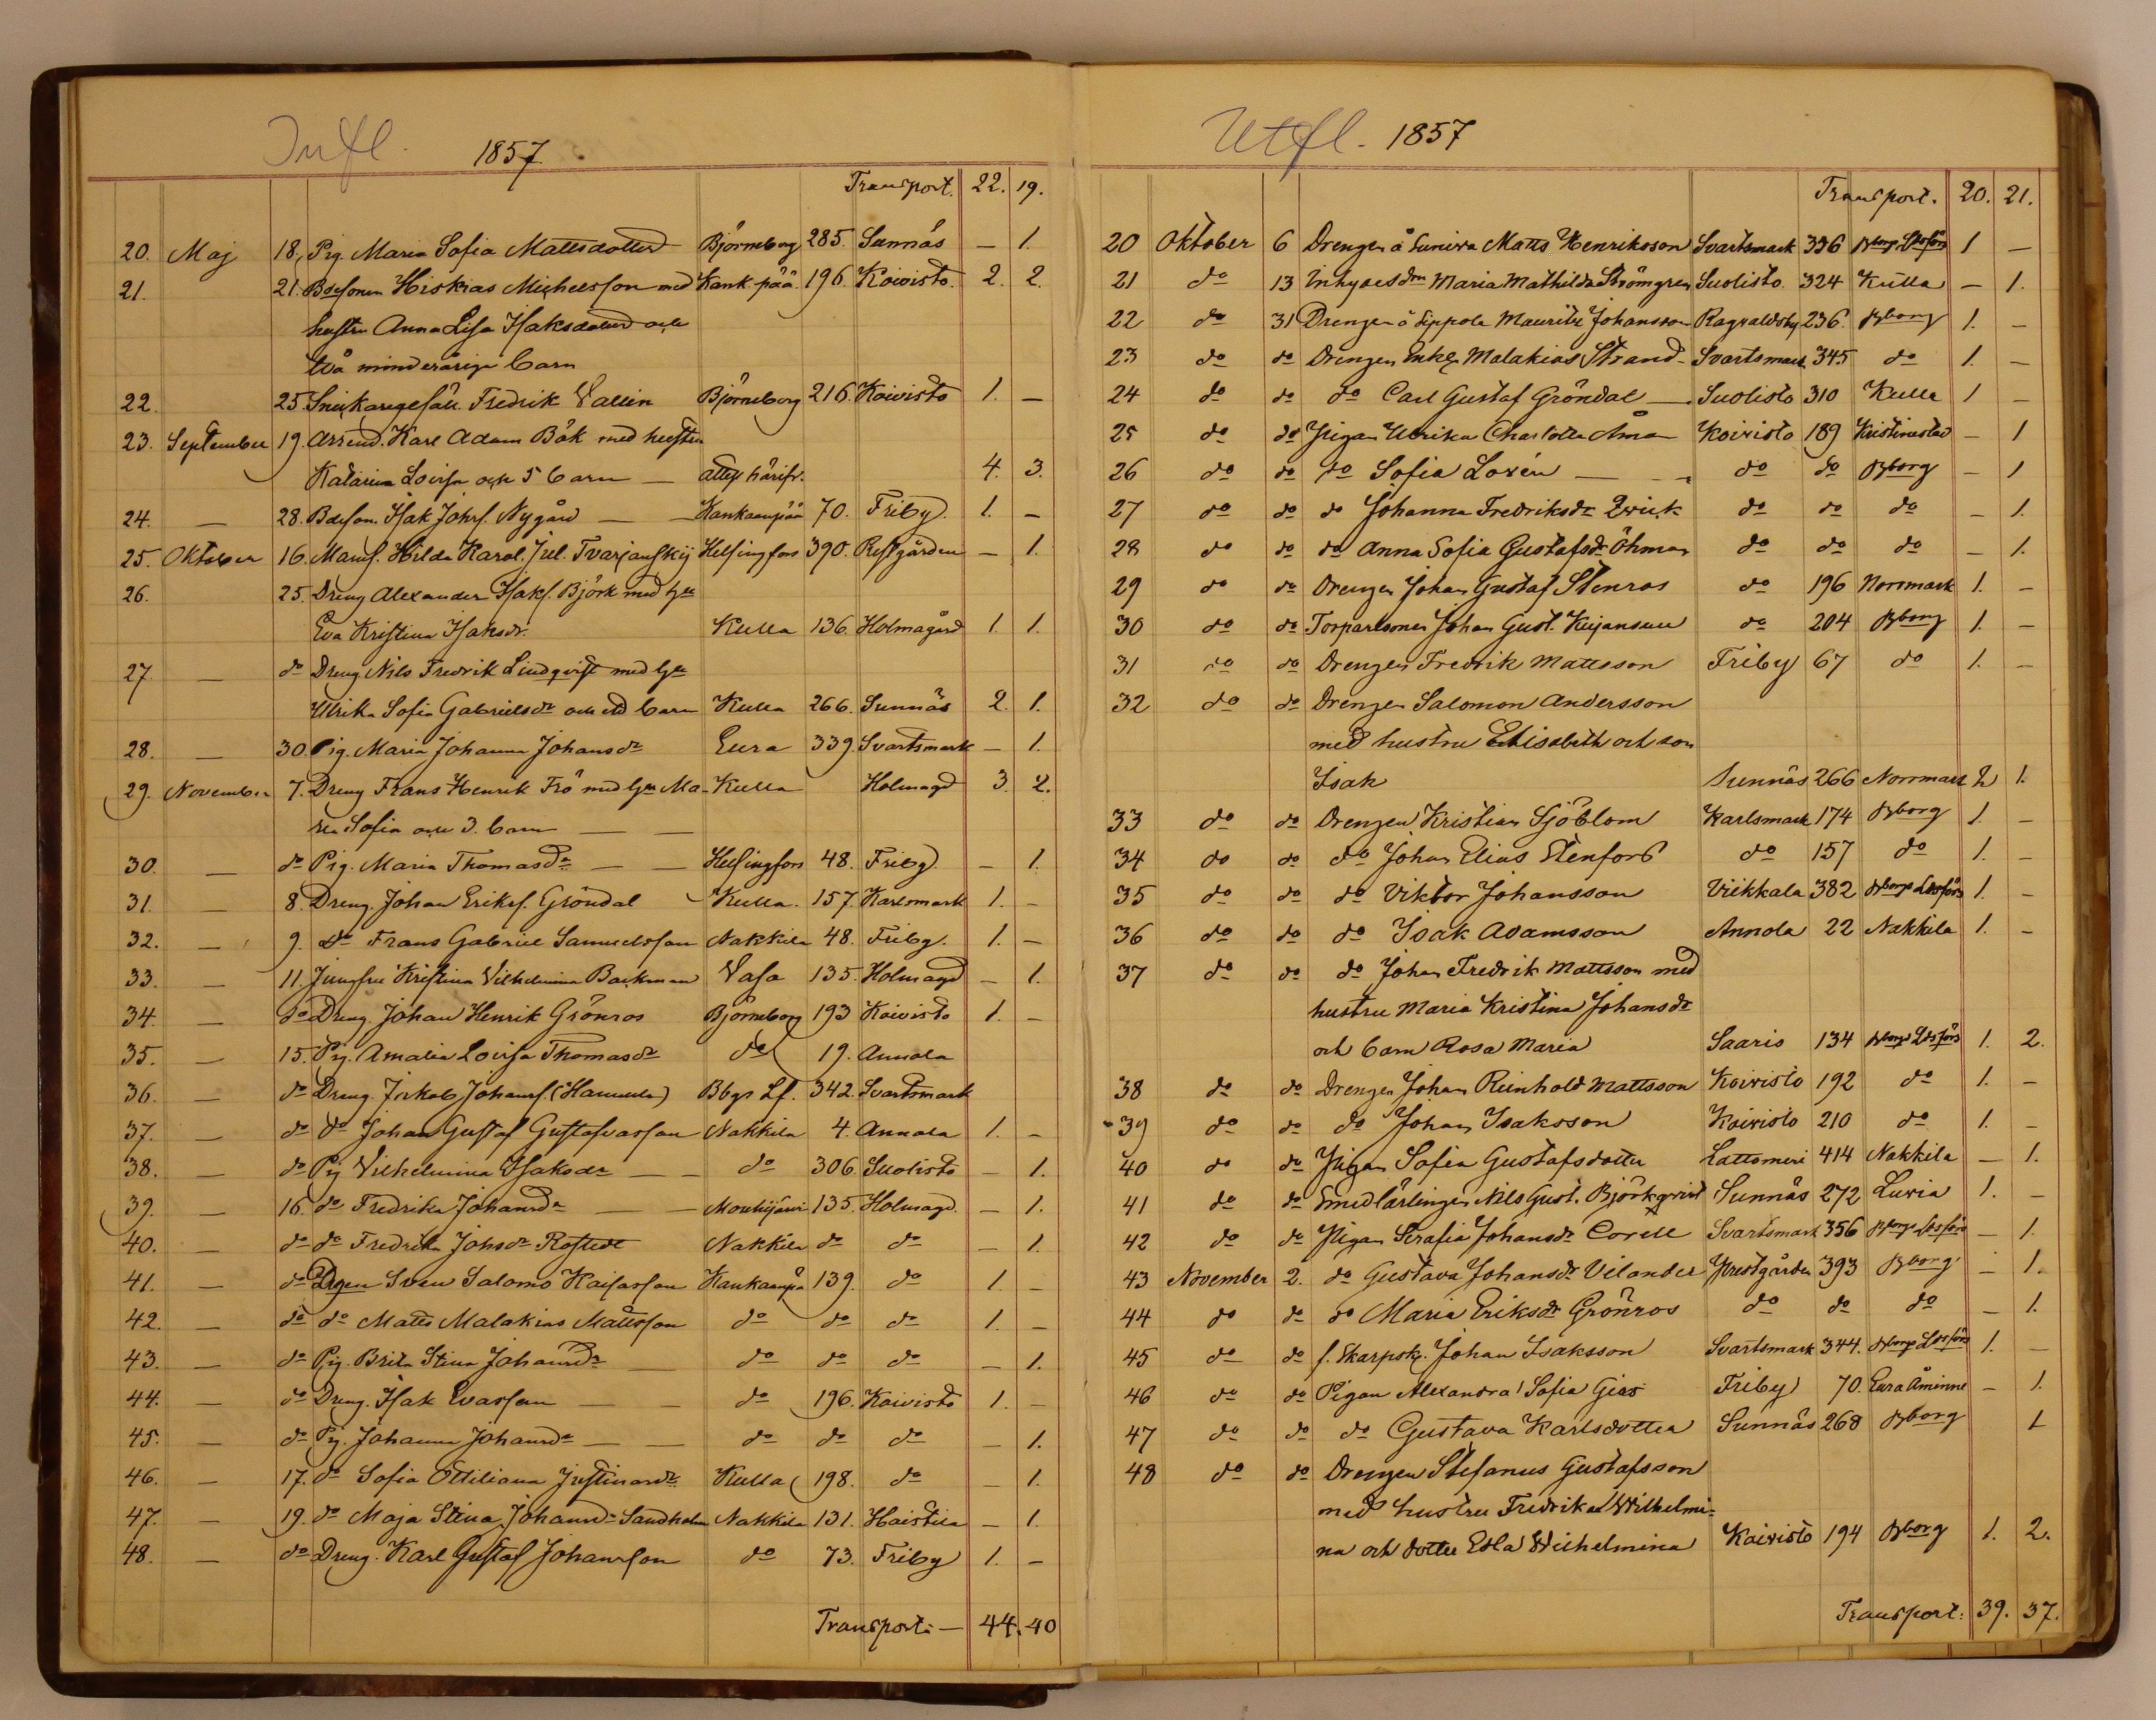 Infl. 1857.
Transport. 22. 19.
20. Maj 18. Pig. Maria Sofia Mattsdotter Björneborg 285. Sunnäs — 1.
21. 21. Bdesonen Hiskias Michelsson med Kankpää 196. Koivisto. 2. 2.
hustru Anna Lisa Isaksdotter och
två minderåriga barn
22. 25. Snickaregesäll. Fredrik Vallin Björneborg 216. Koivisto 1. —
23. September 19. Arrend. Karl Adam Bök med hustru
Katarina Lovisa och 5 barn — attest härifr. 4. 3.
24. — 28. Bdeson. Isak Johss. Nygård — Kankaanpää 70. Friby. 1. —
25. Oktober 16. Mams. Hilda Karol. Jul. Tvarjanskij Helsingfors 390. Prestgården — 1.
26. 25. Dreng Alexander Isaks. Björk med h:u
Eva Kristina Isaksdr. Kulla 136. Holmagård 1. 1.
27. — do Dreng Nils Fredrik Lindqvist med h:u
Ulrika Sofia Gabrielsdr och ett barn Kulla 266. Sunnäs 2. 1.
28. — 30. Pig. Maria Johanna Johansdr Eura 339. Svartsmark — 1.
29. November 7. Dreng Frans Henrik Frö med h:u Ma- Kulla Holmagd 3. 2.
ria Sofia och 3. barn — —
30. — do Pig. Maria Thomasdr — Helsingfors 48. Friby. — 1.
31. — 8. Dreng. Johan Eriks. Gröndal Kulla. 157. Karlsmark 1. —
32. — 9. do Frans Gabriel Samuelsson Nakkila 48. Friby. 1. —
33. — 11. Jungfru Kristina Vilhelmina Backman Vasa 135. Holmagd — 1.
34. — do Dreng. Johan Henrik Grönros Björneborg 193 Koivisto 1. —
35. — 15. Pig. Amalia Lovisa Thomasdr do 19. Annola
36. — do Dreng. Jakob Johanss. (Hannula) Bbgs Lf. 342. Svartsmark
37. — do do Johan Gustaf Gustafvasson Nakkila 4. Annala 1. —
38. — do Pig Vilhelmina Isaksdr — do 306. Suolisto — 1.
39. — 16. do Fredrika Johansdr — Mouhijärvi 135. Holmagd. — 1.
40. — do do Fredrika Johsdr Rostedt Nakkila do do — 1.
41. — do Drgen Sven Salomo Kaisasson Kankaanpä 139. do 1. —
42. — do do Matts Malakias Mattsson do do do 1. —
43. — do Pig. Brita Stina Johansdr — do do do — 1.
44. — do Dreng. Isak Evasson — do 196. Koivisto 1. —
45. — do Pig. Johanna Johansdr — do do do — 1.
46. — 17. do Sofia Ottiliana Justinasdr. Kulla 198. do — 1.
47. — 19. do Maja Stina Johansdr Sandholm Nakkila 131. Haistila — 1.
48. — do Dreng. Karl Gustaf Johansson do 73. Friby 1. —
Transport: — 44. 40
Utfl. 1857
Transport. 20. 21.
20 Oktober 6 Drengen å Sunivra Matts Henriksson Svartsmark 336 Bborgs Ldsförs 1 —
21 do 13 Inhysesdrn Maria Mathilda Strömgren Suolisto. 324 Kulla — 1.
22 do 31 Drengen å Sippola Mauritz Johansson Ragvaldsby 236. Bborg 1. —
23 do do Drengen Enkl. Malakias Strand — Svartsmark 345 do 1. —
24 do do do Carl Gustaf Gröndal — Suolisto 310 Kulla 1 —
25 do do Pigan Ulrika Charlotta Åman Koivisto 189 Kristinestad — 1
26 do do do Sofia Lovén — do do Bborg — 1
27 do do do Johanna Fredriksdr Qvick do do do — 1.
28 do do do Anna Sofia Gustafsdr Öhman do do do — 1.
29 do do Drengen Johan Gustaf Stenros do 196 Norrmark 1. —
30 do do Torparesonen Johan Gust. Kujansuu do 204 Bborg 1. —
31 do do Drengen Fredrik Mattsson Friby 67 do 1. —
32 do do Drengen Salomon Andersson
med hustru Elisabeth och son
Isak Sunnäs 266 Norrmark 2 1.
33 do do Drengen Kristian Sjöblom Karlsmark 174 Bborg 1. —
34 do do do Johan Elias Stenfors do 157 do 1. —
35 do do do Viktor Johansson Viikkala 382 Bborgs Ldsförs 1. —
36 do do do Isak Adamsson Annola 22 Nakkila 1. —
37 do do do Johan Fredrik Mattsson med
hustru Maria Kristina Johansdr
och barn Rosa Maria Saaris 134 Bborgs Ldsförs 1. 2.
38 do do Drengen Johan Reinhold Mattsson Koivisto 192 do 1. —
39 do do do Johan Isaksson Koivisto 210 do 1. —
40 do do Pigan Sofia Gustafsdotter Lattomeri 414 Nakkila — 1.
41 do do Smedlärlingen Nils Gust. Björkqvist Sunnäs 272 Luvia 1. —
42 do do Pigan Serafia Johansdr Corell Svartsmark 356 Bborgs Ldsförs — 1.
43 November 2. do Gustava Johansdr Vilander Prestgården 393 Bborg — 1.
44 do do do Maria Eriksdr Grönros do do do — 1.
45 do do f. Skarpsk. Johan Isaksson Svartsmark 344. Bborgs Ldsförs 1. —
46 do do Pigan Alexandra Sofia Giers Friby 70. Eura Åminne — 1.
47 do do do Gustava Karlsdotter Sunnäs 268 Bborg 1
48 do do Drengen Stefanus Gustafsson
med hustru Fredrika Wilhelmi-
na och dotter Edla Wilhelmina Koivisto 194 Bborg 1. 2.
Transport: 39. 37.